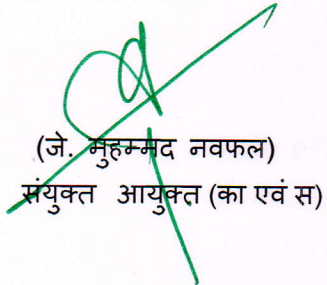 (जे. मुहम्मद नवफल)
संयुक्त आयुक्त (का एवं स)